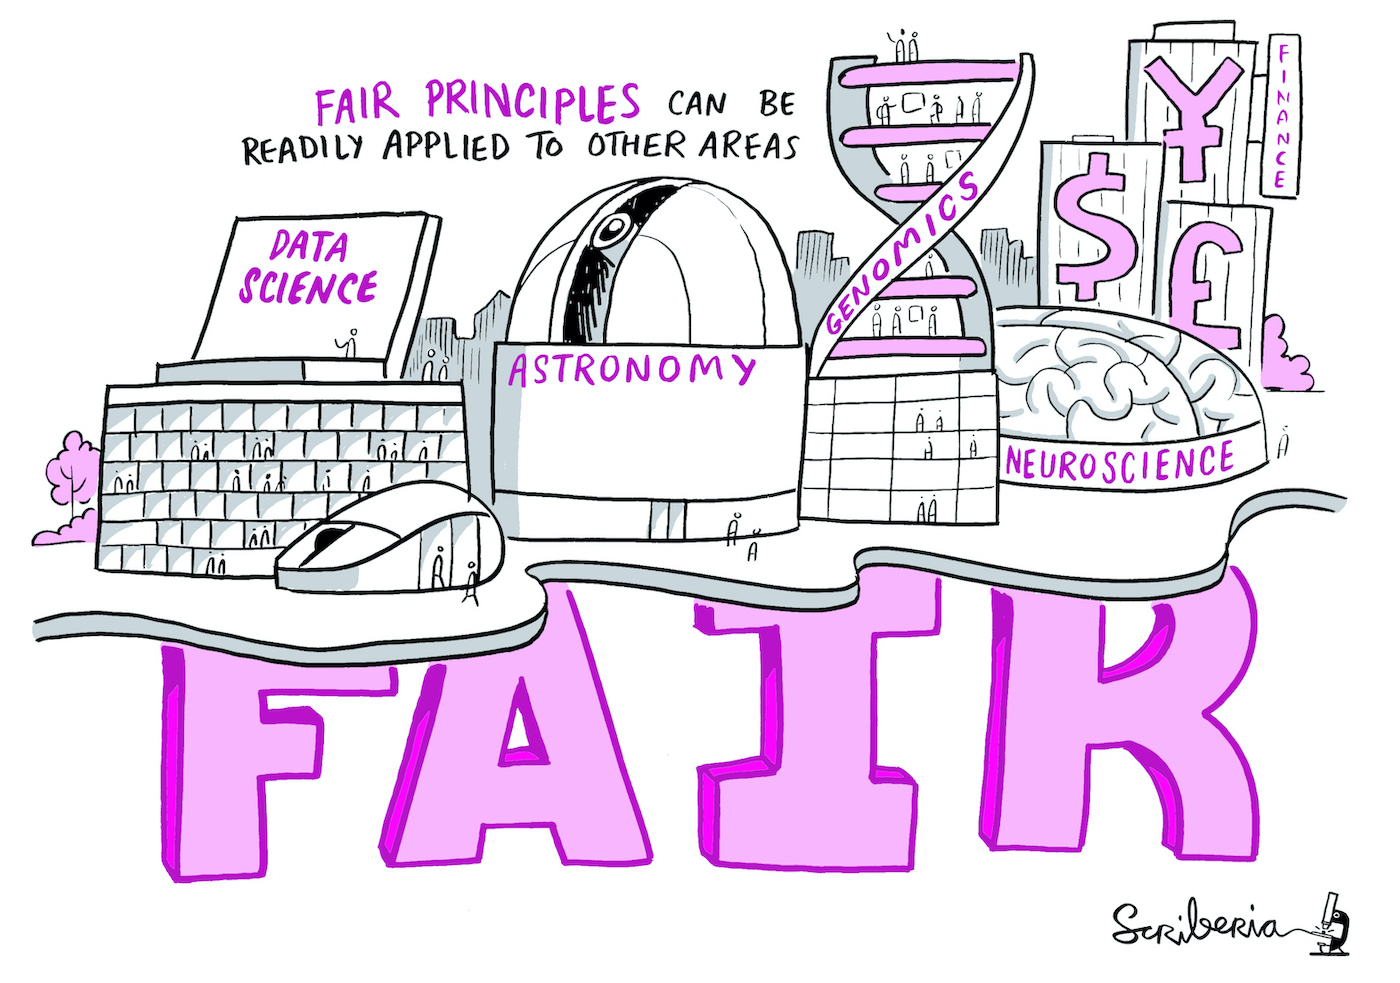 FAIR PRINCIPLES CAN BE
READILY APPLIED TO OTHER AREAS
DATA
SCIENCE
ASTRONOMY
GENOMICS
¥
FINANCE
$
£
NEUROSCIENCE
FAIR
Scriberia